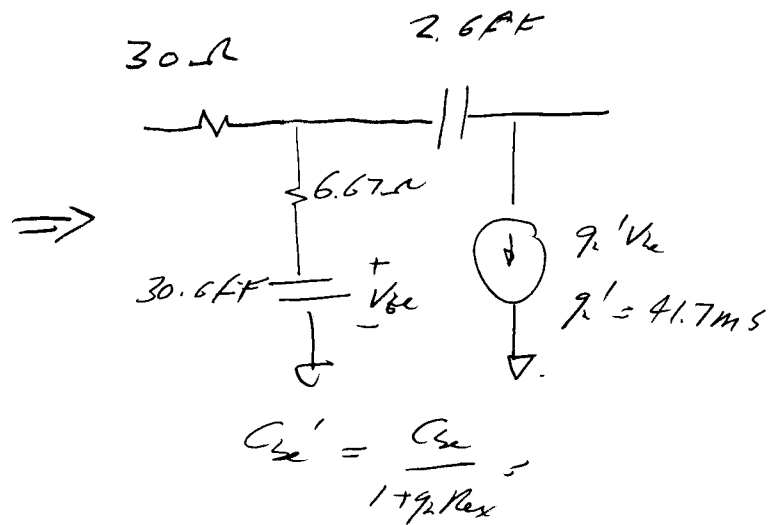 2.6fF
30Ω
6.67Ω
⇒
30.6fF
+
Vbe
-
gm'Vbe
gm' = 41.7mS
Cbe' = Cbe / 1+gmRex =